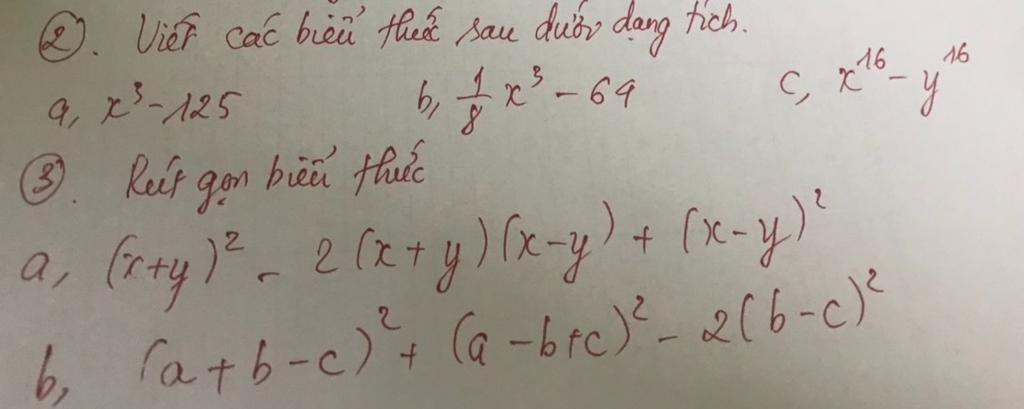 ②. Viết các biểu thức sau dưới dạng tích.
a, x³ - 125 b, 1/8 x³ - 64 c, x¹⁶ - y¹⁶
③. Rút gọn biểu thức
a, (x+y)² - 2(x+y)(x-y) + (x-y)²
b, (a+b-c)² + (a-b+c)² - 2(b-c)²